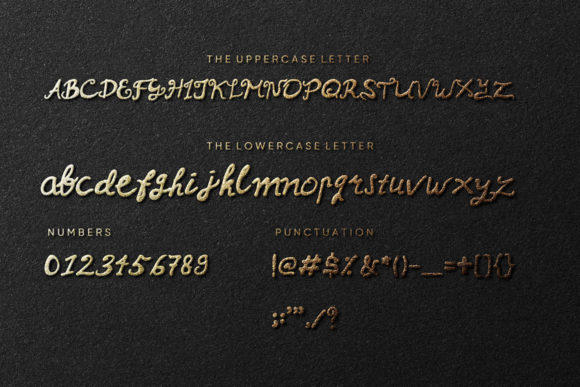 THE UPPERCASE LETTER
ABCDEFGHIJKLMNOPQRSTUVWXYZ
THE LOWERCASE LETTER
abcdefghijklmnopqrstuvwxyz
NUMBERS
0123456789
PUNCTUATION
!@#$%&*()-_=+[]{}
;:"',./?